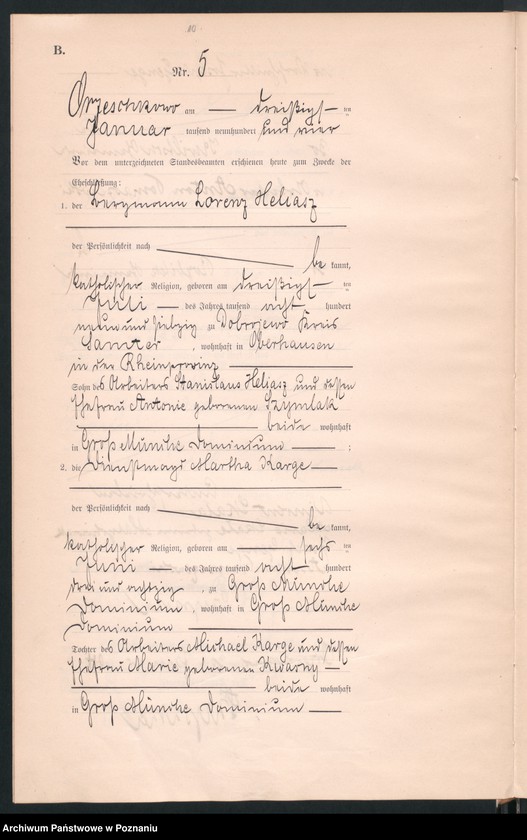 10.
B.
Nr. 5
Orzeschkowo am — dreißigsten
Januar tausend neunhundert und vier
Vor dem unterzeichneten Standesbeamten erschienen heute zum Zwecke der
Eheschließung:
1. der Bergmann Lorenz Heliasz
der Persönlichkeit nach be kannt,
katholischer Religion, geboren am dreißigsten
Juli — des Jahres tausend acht hundert
neun und siebzig zu Dobrojewo Kreis
Samter, wohnhaft in Oberhausen
in der Rheinprovinz
Sohn des Arbeiters Stanislaus Heliasz und dessen
Ehefrau Antonie geborenen Szymlak
beide wohnhaft
in Groß Münche Dominium — ;
2. die Dienstmagd Martha Karge —
der Persönlichkeit nach be kannt,
katholischer Religion, geboren am sechsten
Juni — des Jahres tausend acht hundert
drei und achtzig, zu Groß Münche
Dominium, wohnhaft in Groß Münche
Dominium
Tochter des Arbeiters Michael Karge und dessen
Ehefrau Marie geborenen Kwarny —
beide wohnhaft
in Groß Münche Dominium —
Archiwum Państwowe w Poznaniu